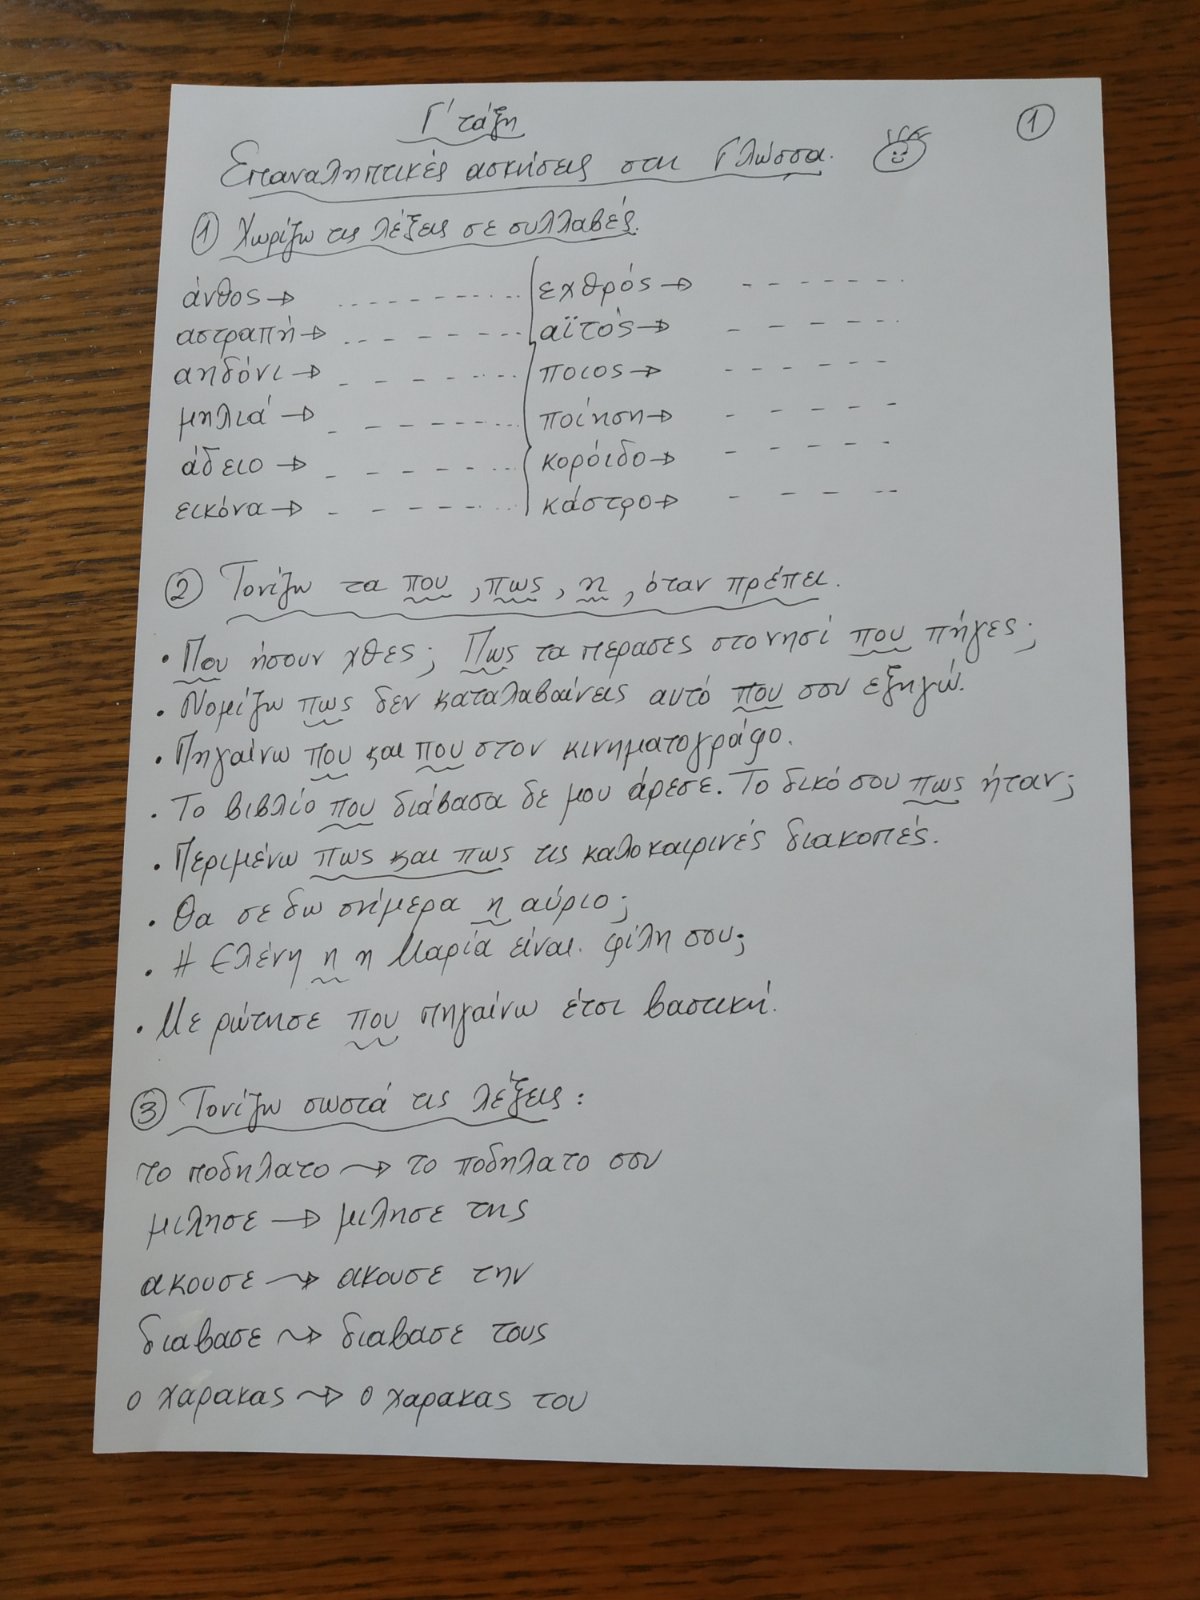 Γ' τάξη
①
Επαναληπτικές ασκήσεις στη Γλώσσα.
① Χωρίζω τις λέξεις σε συλλαβές.
άνθος→ - - - - - - - - εχθρός→ - - - - -
αστραπή→ - - - - - - - - αϊτός→ - - - - -
αηδόνι→ - - - - - - - ποιος→ - - - - -
μηλιά→ - - - - - - - ποίηση→ - - - - -
άδειο→ - - - - - - - κορόιδο→ - - - - -
εικόνα→ - - - - - - - κάστρο→ - - - -
② Τονίζω τα που, πως, η, όταν πρέπει.
• Που ήσουν χθες; Πως τα πέρασες στο νησί που πήγες;
• Νομίζω πως δεν καταλαβαίνεις αυτό που σου εξηγώ.
• Πηγαίνω που και που στον κινηματογράφο.
• Το βιβλίο που διάβασα δε μου άρεσε. Το δικό σου πως ήταν;
• Περιμένω πως και πως τις καλοκαιρινές διακοπές.
• Θα σε δω σήμερα η αύριο;
• Η Ελένη η η Μαρία είναι φίλη σου;
• Με ρώτησε που πηγαίνω έτσι βαστική.
③ Τονίζω σωστά τις λέξεις:
το ποδηλατο → το ποδηλατο σου
μιλησε → μιλησε της
ακουσε → ακουσε την
διαβασε → διαβασε τους
ο χαρακας → ο χαρακας του